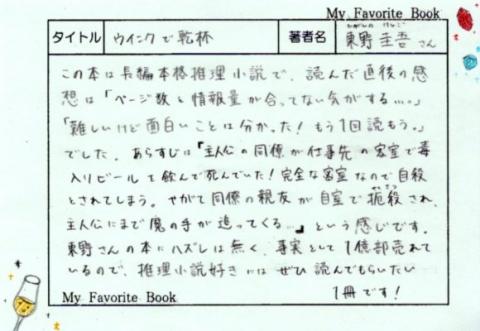 My Favorite Book
タイトル ウインクで乾杯 著者名 ひがしの けいご
東野 圭吾 さん
この本は長編本格推理小説で、読んだ直後の感
想は「ページ数と情報量が合ってない気がする...。」
「難しいけど面白いことは分かった！もう1回読もう。」
でした。あらすじは『主人公の同僚が仕事先の客室で毒
入りビールを飲んで死んでいた！完全な密室なので自殺
とされてしまう。やがて同僚の親友が自室で扼殺され、
主人公にまで魔の手が迫ってくる...』という感じです。
東野さんの本にハズレは無く、事実として1億部売れて
いるので、推理小説好きにはぜひ読んでもらいたい
1冊です！
My Favorite Book